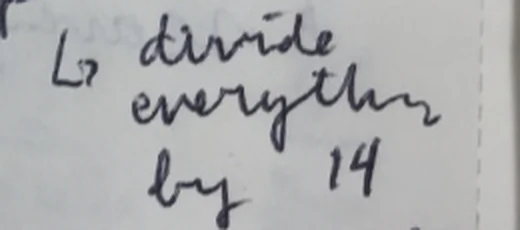 ↳ divide
everything
by 14